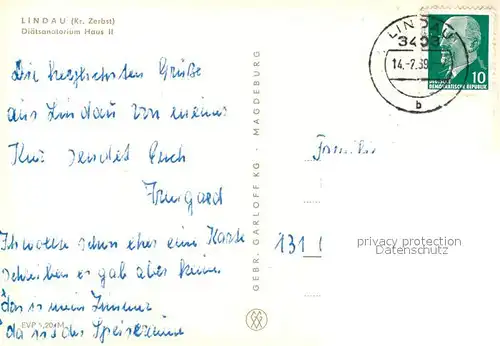 LINDAU (Kr. Zerbst)
Diätsanatorium Haus II
LINDAU
3403
14.-2.69.
b
10
DEUTSCHE
DEMOKRATISCHE REPUBLIK
Die herzlichsten Grüße
aus Lindau von meiner
Kur sendet Euch
Irmgard
Ich wollte schon eher eine Karte
schreiben es gab aber keine
das is mein Zimmer
da is der Speiseräume
EVP 0,20 M
GEBR. GARLOFF KG · MAGDEBURG
Familie
131
privacy protection
Datenschutz